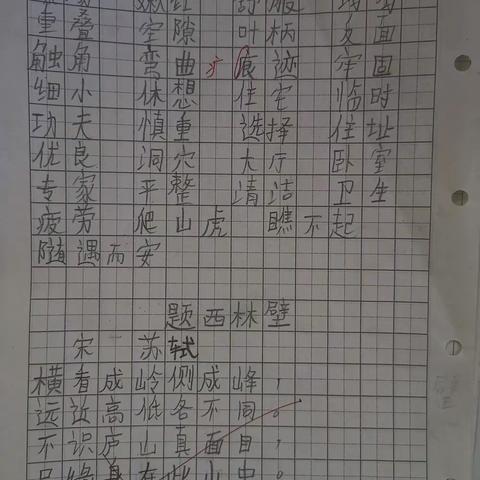 嫩红 舒服
重叠 空隙 叶柄 反面
触角 弯曲 痕迹 牢固
细小 休想 住宅 临时
功夫 慎重 选择 住址
优良 洞穴 大厅 卧室
专家 平整 清洁 卫生
疲劳 爬山虎 瞧不起
随遇而安
题西林壁
宋 苏轼
横看成岭侧成峰，
远近高低各不同。
不识庐山真面目，
只缘身在此山中。